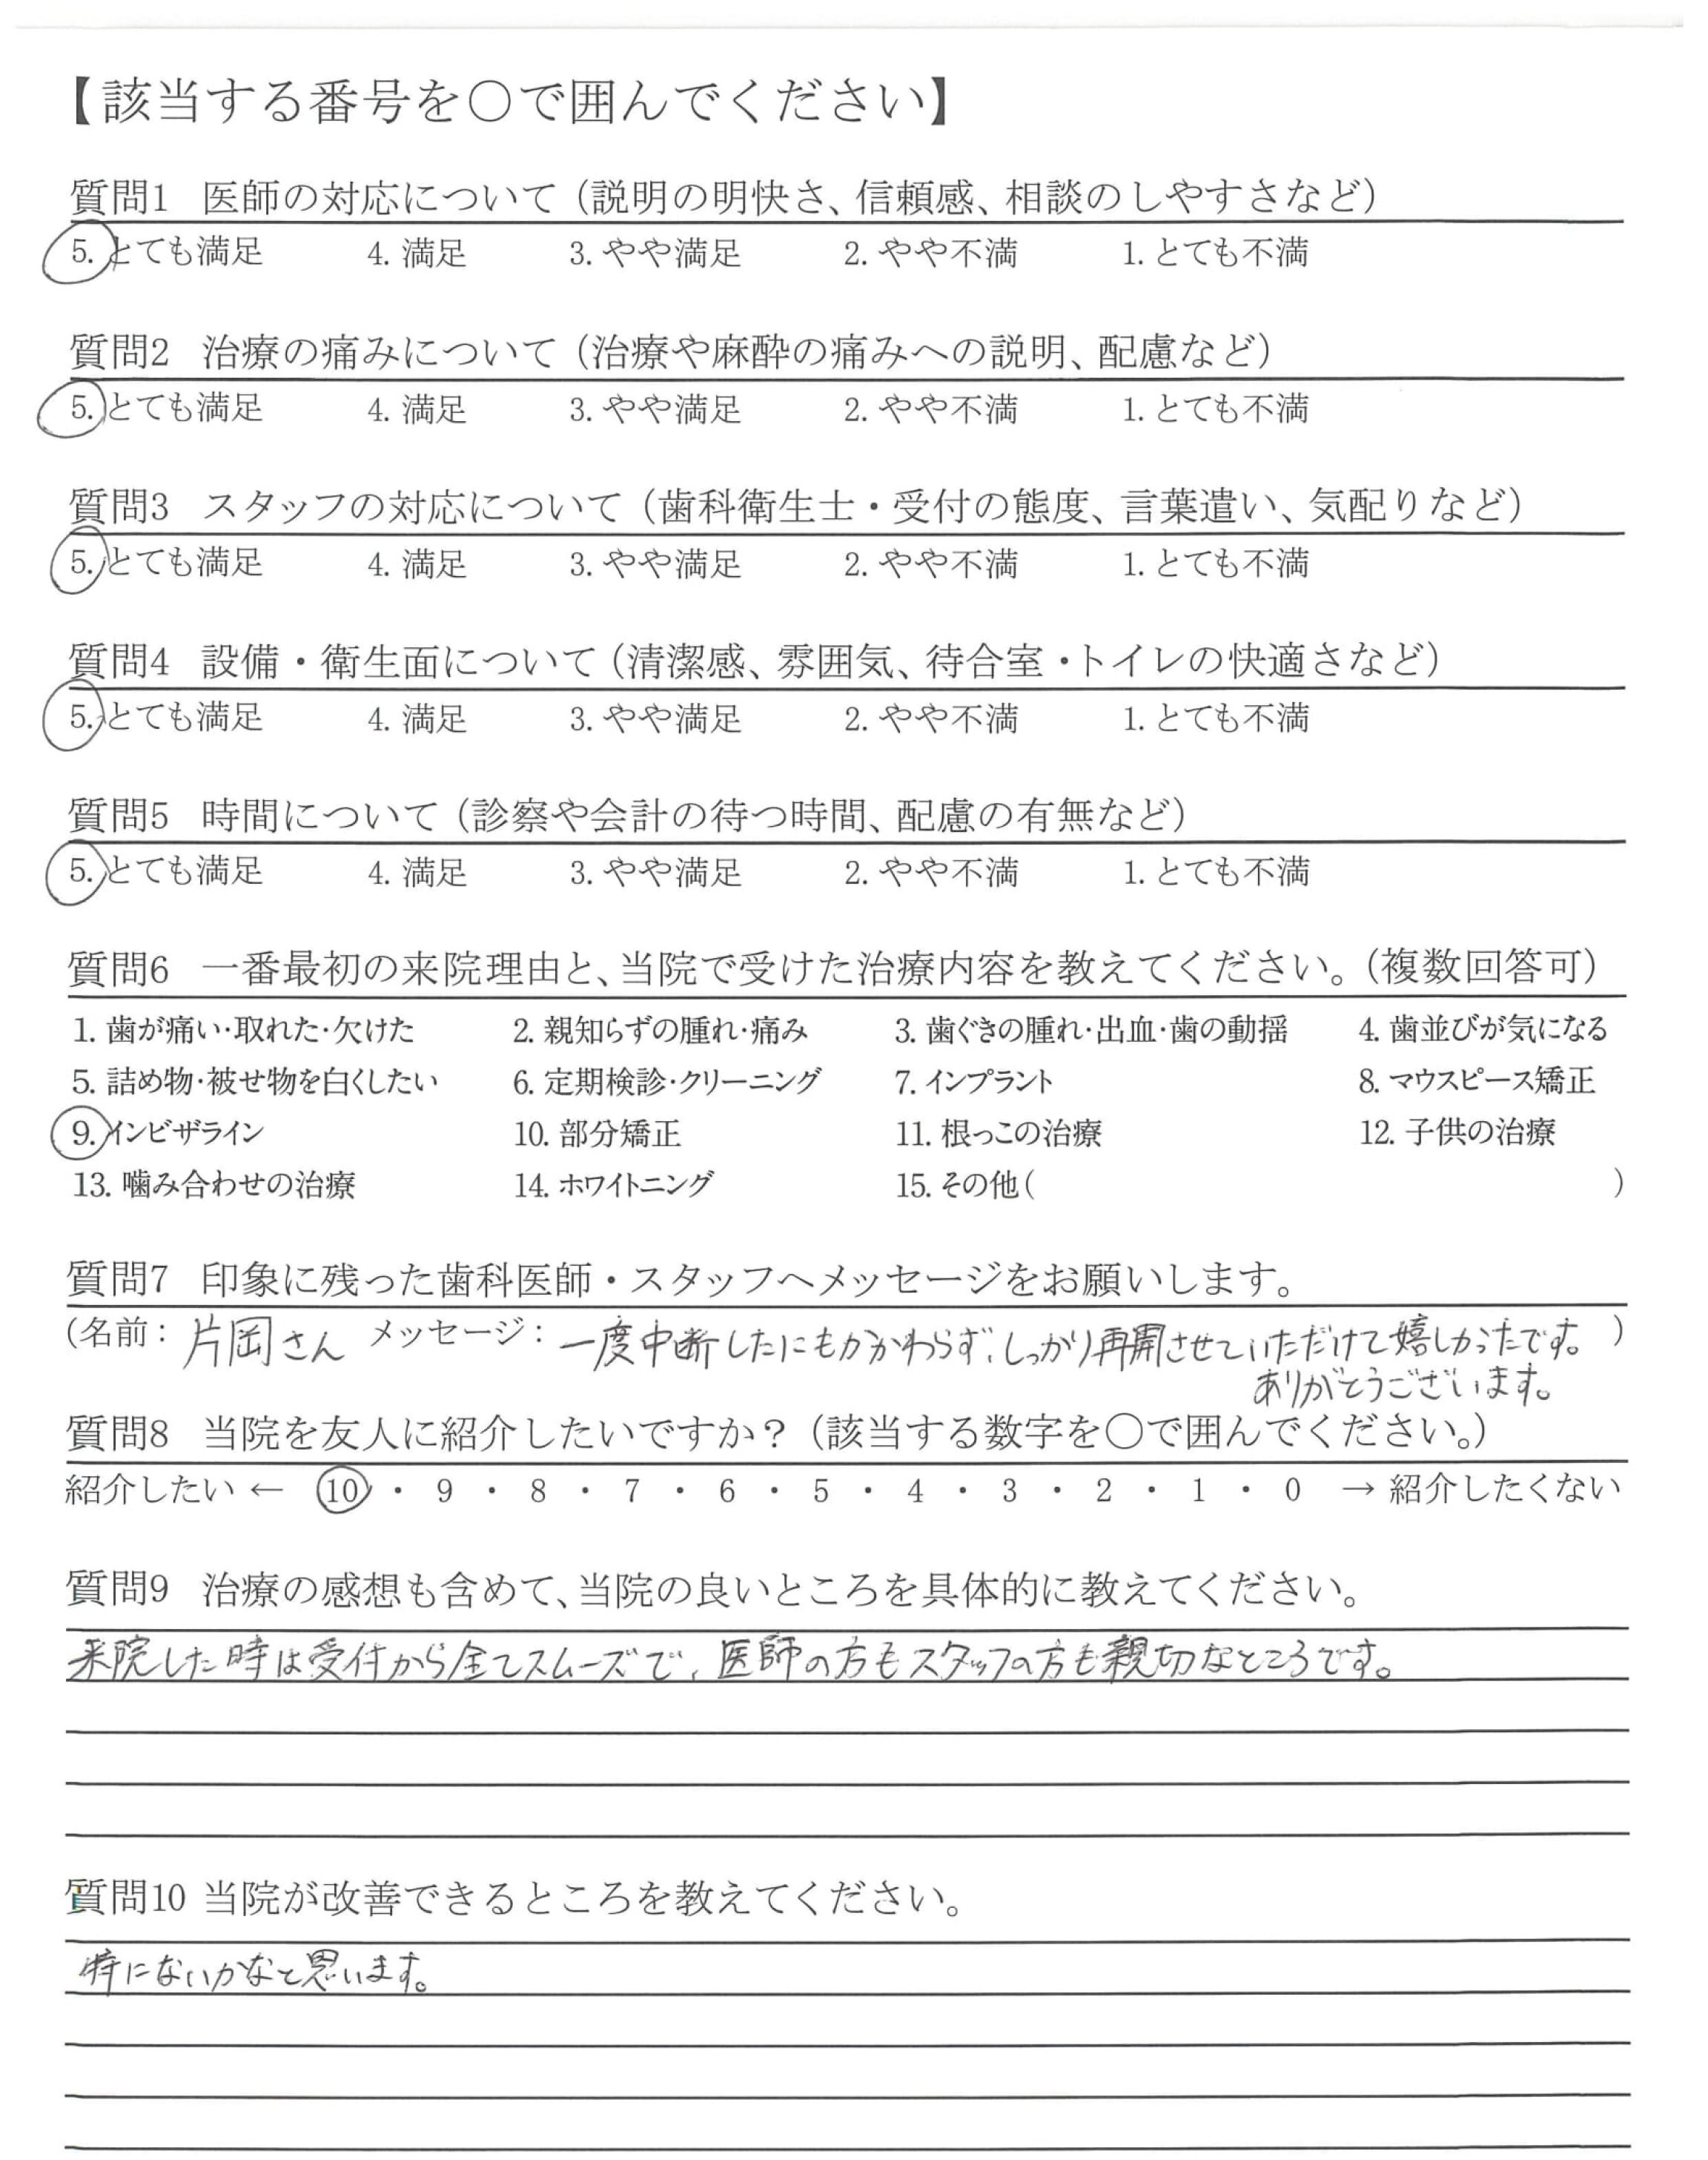 【該当する番号を○で囲んでください】
質問1 医師の対応について（説明の明快さ、信頼感、相談のしやすさなど）
5. とても満足 4. 満足 3. やや満足 2. やや不満 1. とても不満
質問2 治療の痛みについて（治療や麻酔の痛みへの説明、配慮など）
5. とても満足 4. 満足 3. やや満足 2. やや不満 1. とても不満
質問3 スタッフの対応について（歯科衛生士・受付の態度、言葉遣い、気配りなど）
5. とても満足 4. 満足 3. やや満足 2. やや不満 1. とても不満
質問4 設備・衛生面について（清潔感、雰囲気、待合室・トイレの快適さなど）
5. とても満足 4. 満足 3. やや満足 2. やや不満 1. とても不満
質問5 時間について（診察や会計の待つ時間、配慮の有無など）
5. とても満足 4. 満足 3. やや満足 2. やや不満 1. とても不満
質問6 一番最初の来院理由と、当院で受けた治療内容を教えてください。（複数回答可）
1. 歯が痛い・取れた・欠けた 2. 親知らずの腫れ・痛み 3. 歯ぐきの腫れ・出血・歯の動揺 4. 歯並びが気になる
5. 詰め物・被せ物を白くしたい 6. 定期検診・クリーニング 7. インプラント 8. マウスピース矯正
9. インビザライン 10. 部分矯正 11. 根っこの治療 12. 子供の治療
13. 噛み合わせの治療 14. ホワイトニング 15. その他（ ）
質問7 印象に残った歯科医師・スタッフへメッセージをお願いします。
（名前： 片岡さん メッセージ： 一度中断したにもかかわらず、しっかり再開させていただけて嬉しかったです。）
ありがとうございます。
質問8 当院を友人に紹介したいですか？（該当する数字を○で囲んでください。）
紹介したい ← 10 ・ 9 ・ 8 ・ 7 ・ 6 ・ 5 ・ 4 ・ 3 ・ 2 ・ 1 ・ 0 → 紹介したくない
質問9 治療の感想も含めて、当院の良いところを具体的に教えてください。
来院した時は受付から全てスムーズで、医師の方もスタッフの方も親切なところです。
質問10 当院が改善できるところを教えてください。
特にないかなと思います。